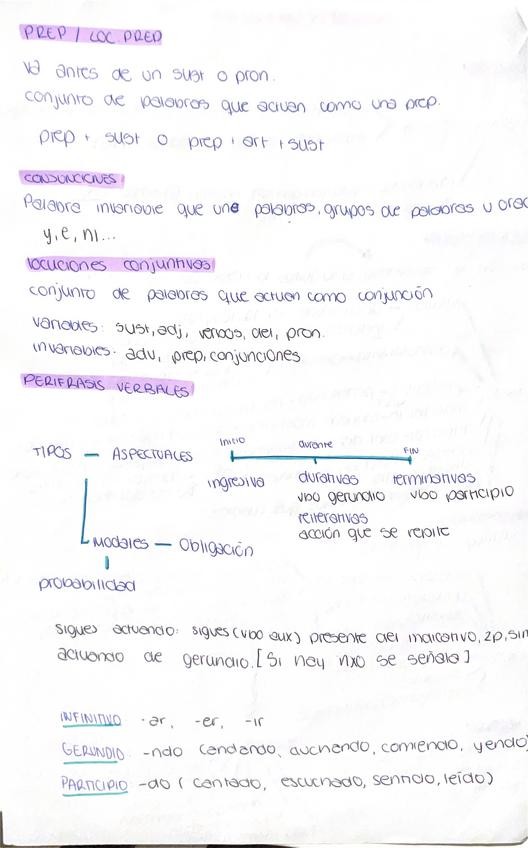 PREP / LOC. PREP
va antes de un sust o pron.
conjunto de palabras que actuan como una prep.
prep + sust o prep + art + sust
CONJUNCIONES
Palabra invariable que une palabras, grupos de palabras u orac
y, e, ni...
locuciones conjuntivas
conjunto de palabras que actuan como conjunción
variables: sust, adj, verbos, det, pron.
invariables: adv, prep, conjunciones
PERIFRASIS VERBALES
Inicio durante FIN
TIPOS — ASPECTUALES
ingresiva durativas terminativas
vbo gerundio vbo participio
reiterativas
acción que se repite
Modales — Obligación
probabilidad
sigues actuando: sigues (vbo aux) presente del indicativo, 2p, sin
actuando de gerundio. [Si hay nxo se señala]
INFINITIVO -ar, -er, -ir
GERUNDIO -ndo (andando, comiendo, yendo)
PARTICIPIO -do (cantado, escuchado, sentido, leído)